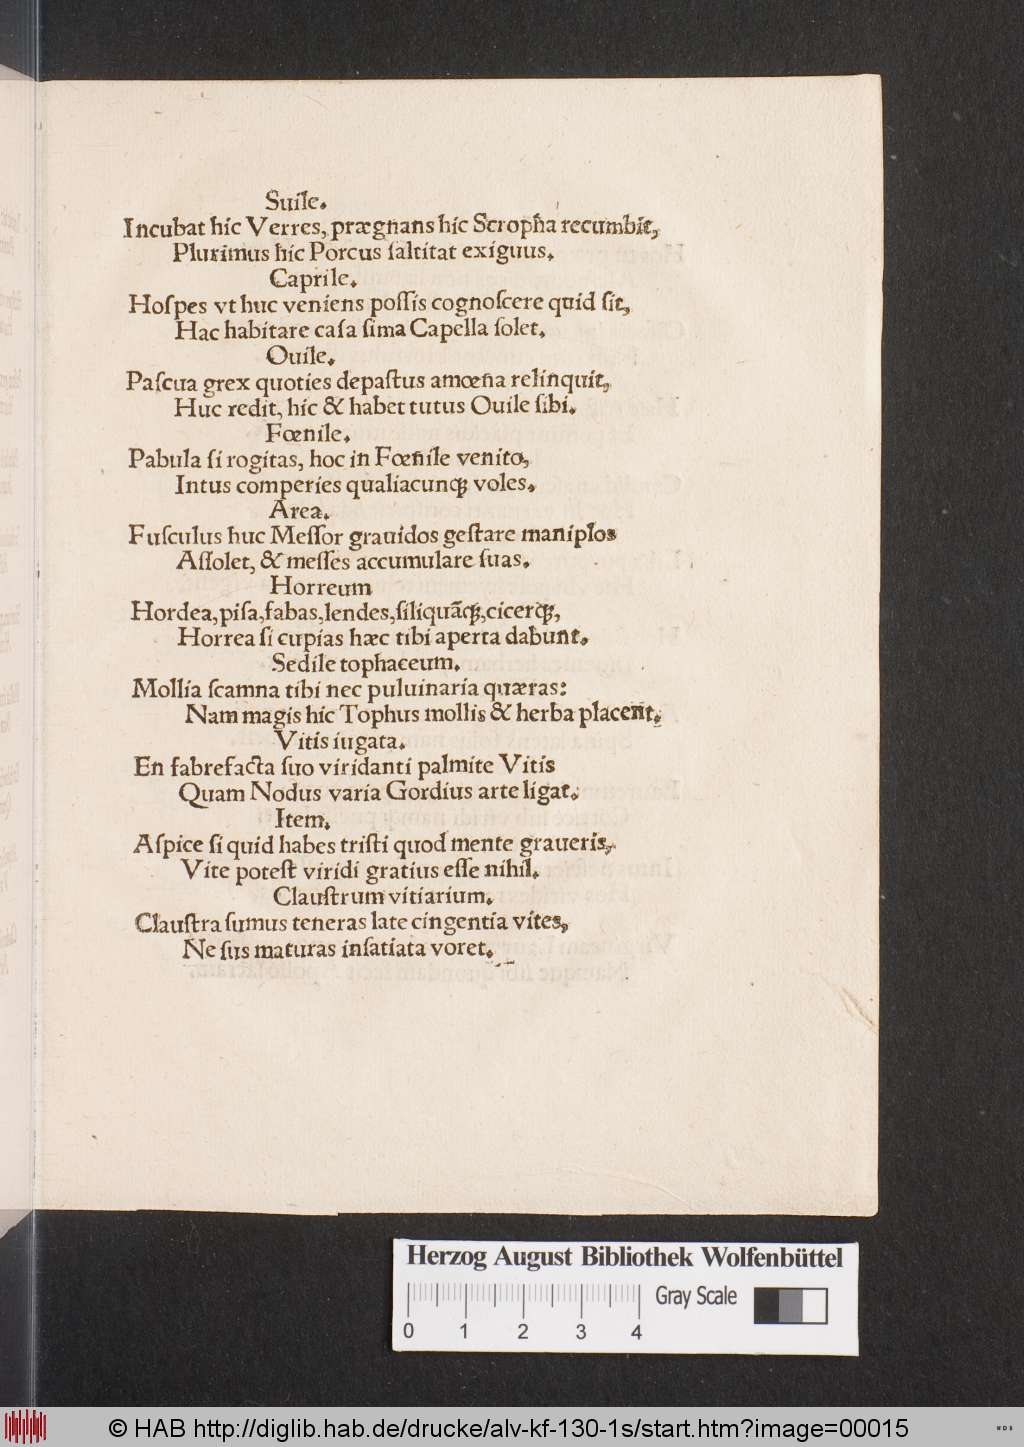 Suile.
Incubat hic Verres, prægnans hic Scropha recumbit,
Plurimus hic Porcus ſaltitat exiguus.
Caprile.
Hoſpes vt huc veniens poſſis cognoſcere quid ſit,
Hac habitare caſa ſima Capella ſolet.
Ouile.
Paſcua grex quoties depaſtus amœna relinquit,
Huc redit, hic & habet tutus Ouile ſibi.
Fœnile.
Pabula ſi rogitas, hoc in Fœnile venito,
Intus comperies qualiacunqꝫ voles.
Area.
Fuſculus huc Meſſor grauidos geſtare maniplos
Aſſolet, & meſſes accumulare ſuas.
Horreum
Hordea, piſa, fabas, lendes, ſiliquãqꝫ, cicerqꝫ,
Horrea ſi cupias hæc tibi aperta dabunt.
Sedile tophaceum.
Mollia ſcamna tibi nec puluinaria quæras:
Nam magis hic Tophus mollis & herba placent.
Vitis iugata.
En fabrefacta ſuo viridanti palmite Vitis
Quam Nodus varia Gordius arte ligat.
Item.
Aſpice ſi quid habes triſti quod mente graueris,
Vite poteſt viridi gratius eſſe nihil.
Clauſtrum vitiarium.
Clauſtra ſumus teneras late cingentia vites,
Ne ſus maturas inſatiata voret.
Herzog August Bibliothek Wolfenbüttel
Gray Scale
0 1 2 3 4
© HAB http://diglib.hab.de/drucke/alv-kf-130-1s/start.htm?image=00015